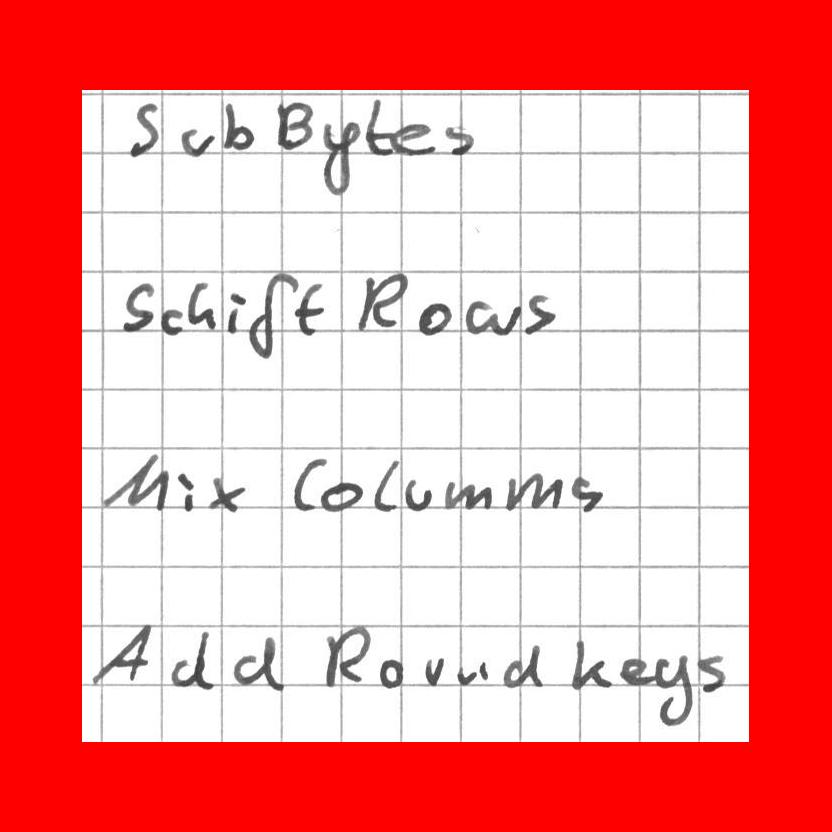 SubBytes
Schift Rows
Mix Columms
Add Round keys